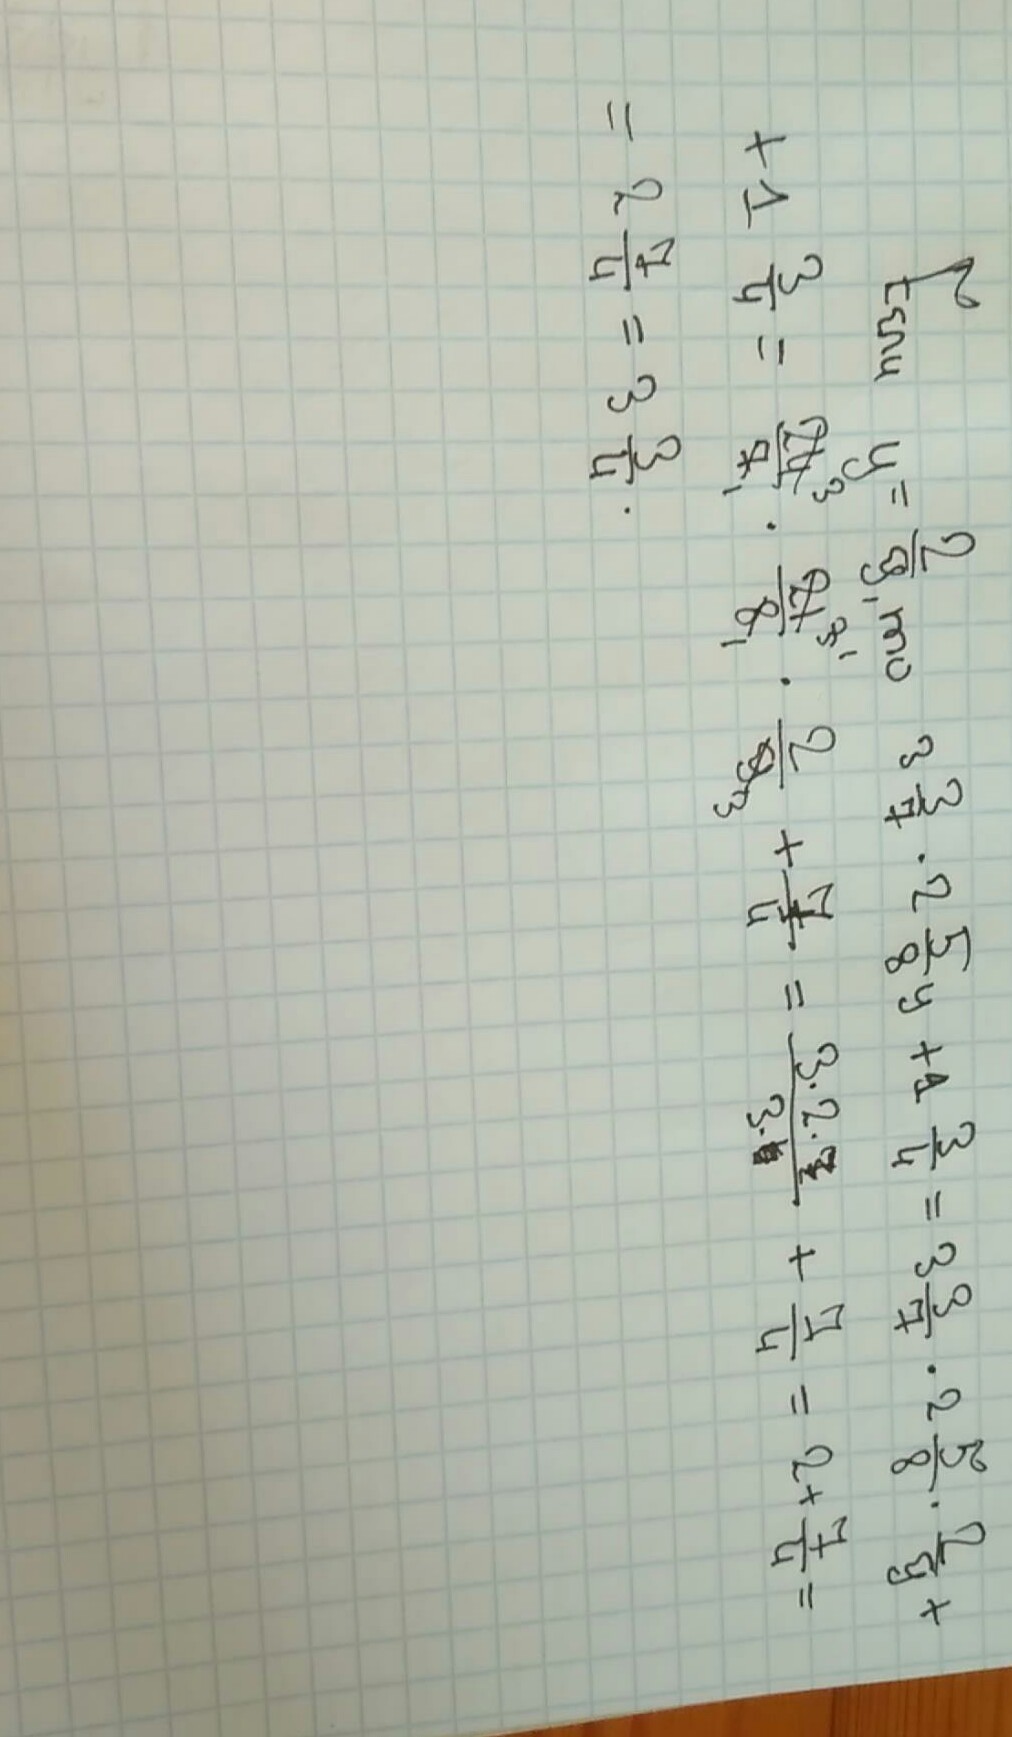 Если y = 2/9, то 3 3/7 · 2 5/8 y + 1 3/4 = 3 3/7 · 2 5/8 · 2/9 +
+ 1 3/4 = 24³/7₁ · 21 ³/8₁ · 2/9₃ + 7/4 = 3·2·/3· + 7/4 = 2 + 7/4 =
= 2 7/4 = 3 3/4.